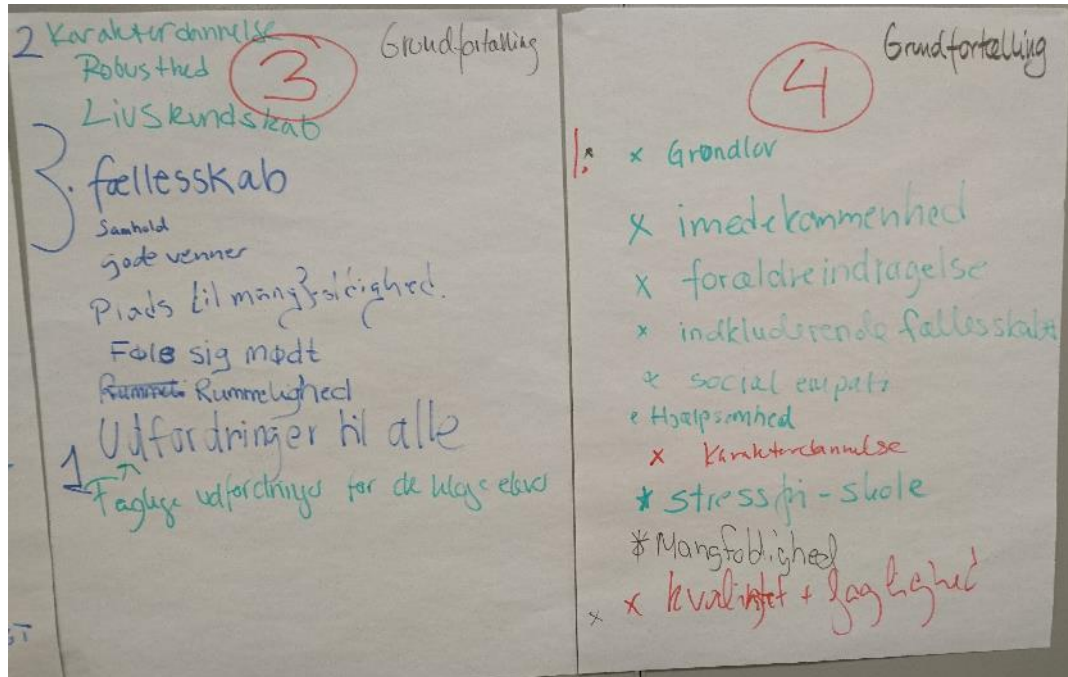 2 Karakterdannelse
Grundfortælling
Robusthed
3
Livskundskab
3.
fællesskab
Samhold
gode venner
Plads til mangfoldighed.
Føle sig mødt
Rummelighed
Udfordringer til alle
1
Faglige udfordringer for de kloge elever
Grundfortælling
4
1:
x Grundlov
x imødekommenhed
x forældreindragelse
x indkluderende fællesskab
x social empati
Hjælpsomhed
x Karakterdannelse
* stressfri-skole
* Mangfoldighed
x x kvalitet + faglighed